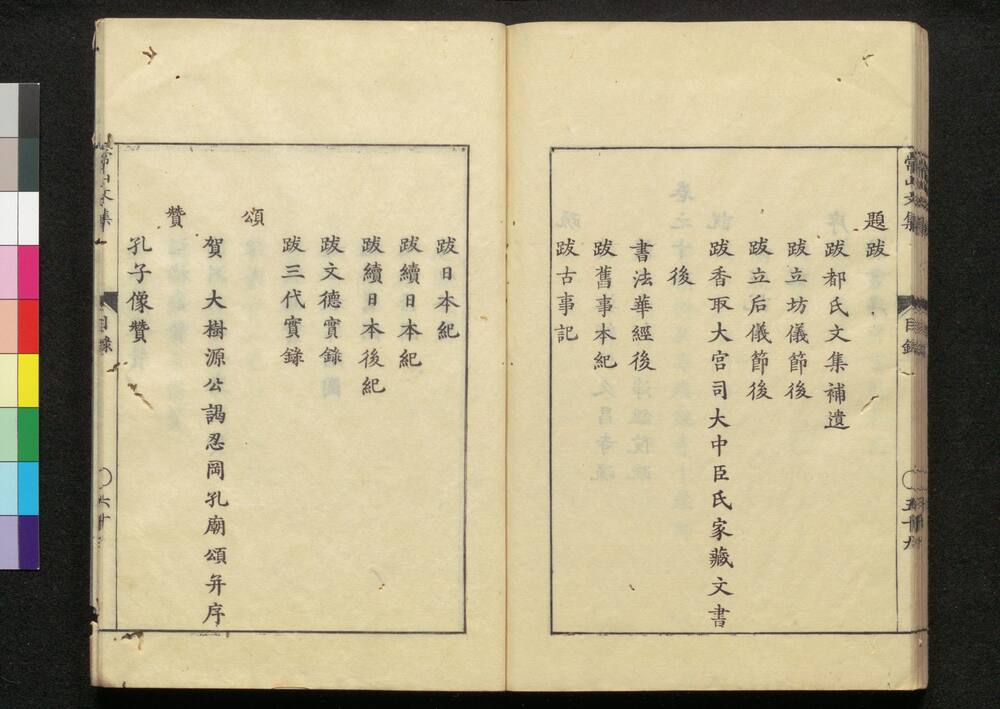 常山文集
目錄
五十九
題跋
跋都氏文集補遺
跋立坊儀節後
跋立后儀節後
跋香取大宮司大中臣氏家藏文書
後
書法華經後
跋舊事本紀
跋古事記
跋日本紀
跋續日本紀
跋續日本後紀
跋文德實錄
跋三代實錄
頌
賀 大樹源公謁忍岡孔廟頌并序
贊
孔子像贊
常山文集
目錄
六十